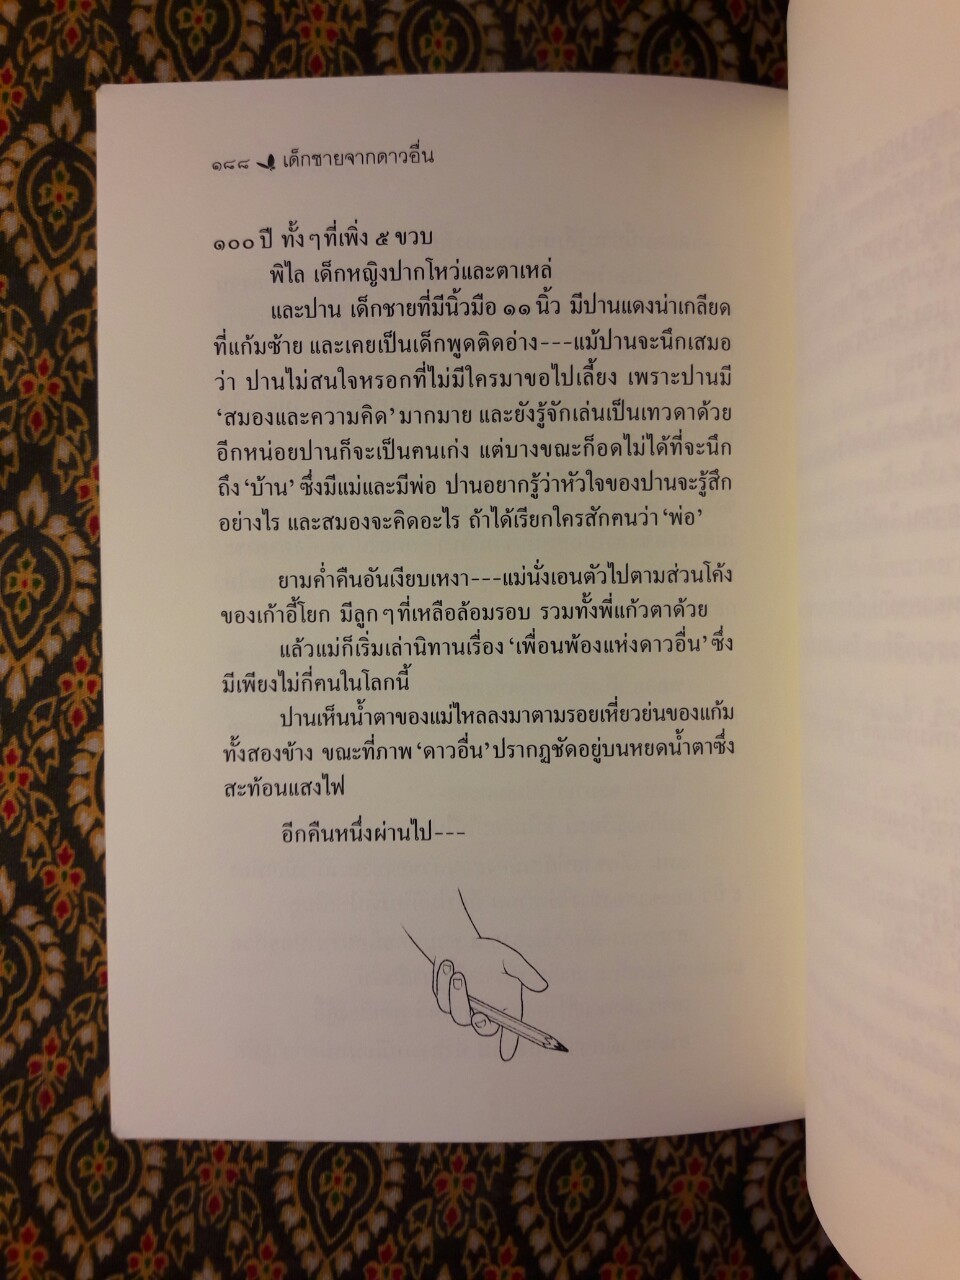 ๑๘๘ เด็กชายจากดาวอื่น
๑๐๐ ปี ทั้งๆ ที่เพิ่ง ๕ ขวบ
พิไล เด็กหญิงปากโหว่และตาเหล่
และปาน เด็กชายที่มีนิ้วมือ ๑๑ นิ้ว มีปานแดงน่าเกลียด
ที่แก้มซ้าย และเคยเป็นเด็กพูดติดอ่าง---แม้ปานจะนึกเสมอ
ว่า ปานไม่สนใจหรอกที่ไม่มีใครมาขอไปเลี้ยง เพราะปานมี
‘สมองและความคิด’ มากมาย และยังรู้จักเล่นเป็นเทวดาด้วย
อีกหน่อยปานก็จะเป็นคนเก่ง แต่บางขณะก็อดไม่ได้ที่จะนึก
ถึง ‘บ้าน’ ซึ่งมีแม่และมีพ่อ ปานอยากรู้ว่าหัวใจของปานจะรู้สึก
อย่างไร และสมองจะคิดอะไร ถ้าได้เรียกใครสักคนว่า ‘พ่อ’
ยามค่ำคืนอันเงียบเหงา---แม่นั่งเอนตัวไปตามส่วนโค้ง
ของเก้าอี้โยก มีลูกๆ ที่เหลือล้อมรอบ รวมทั้งพี่แก้วตาด้วย
แล้วแม่ก็เริ่มเล่านิทานเรื่อง ‘เพื่อนพ้องแห่งดาวอื่น’ ซึ่ง
มีเพียงไม่กี่คนในโลกนี้
ปานเห็นน้ำตาของแม่ไหลลงมาตามรอยเหี่ยวย่นของแก้ม
ทั้งสองข้าง ขณะที่ภาพ ‘ดาวอื่น’ ปรากฏชัดอยู่บนหยดน้ำตาซึ่ง
สะท้อนแสงไฟ
อีกคืนหนึ่งผ่านไป---